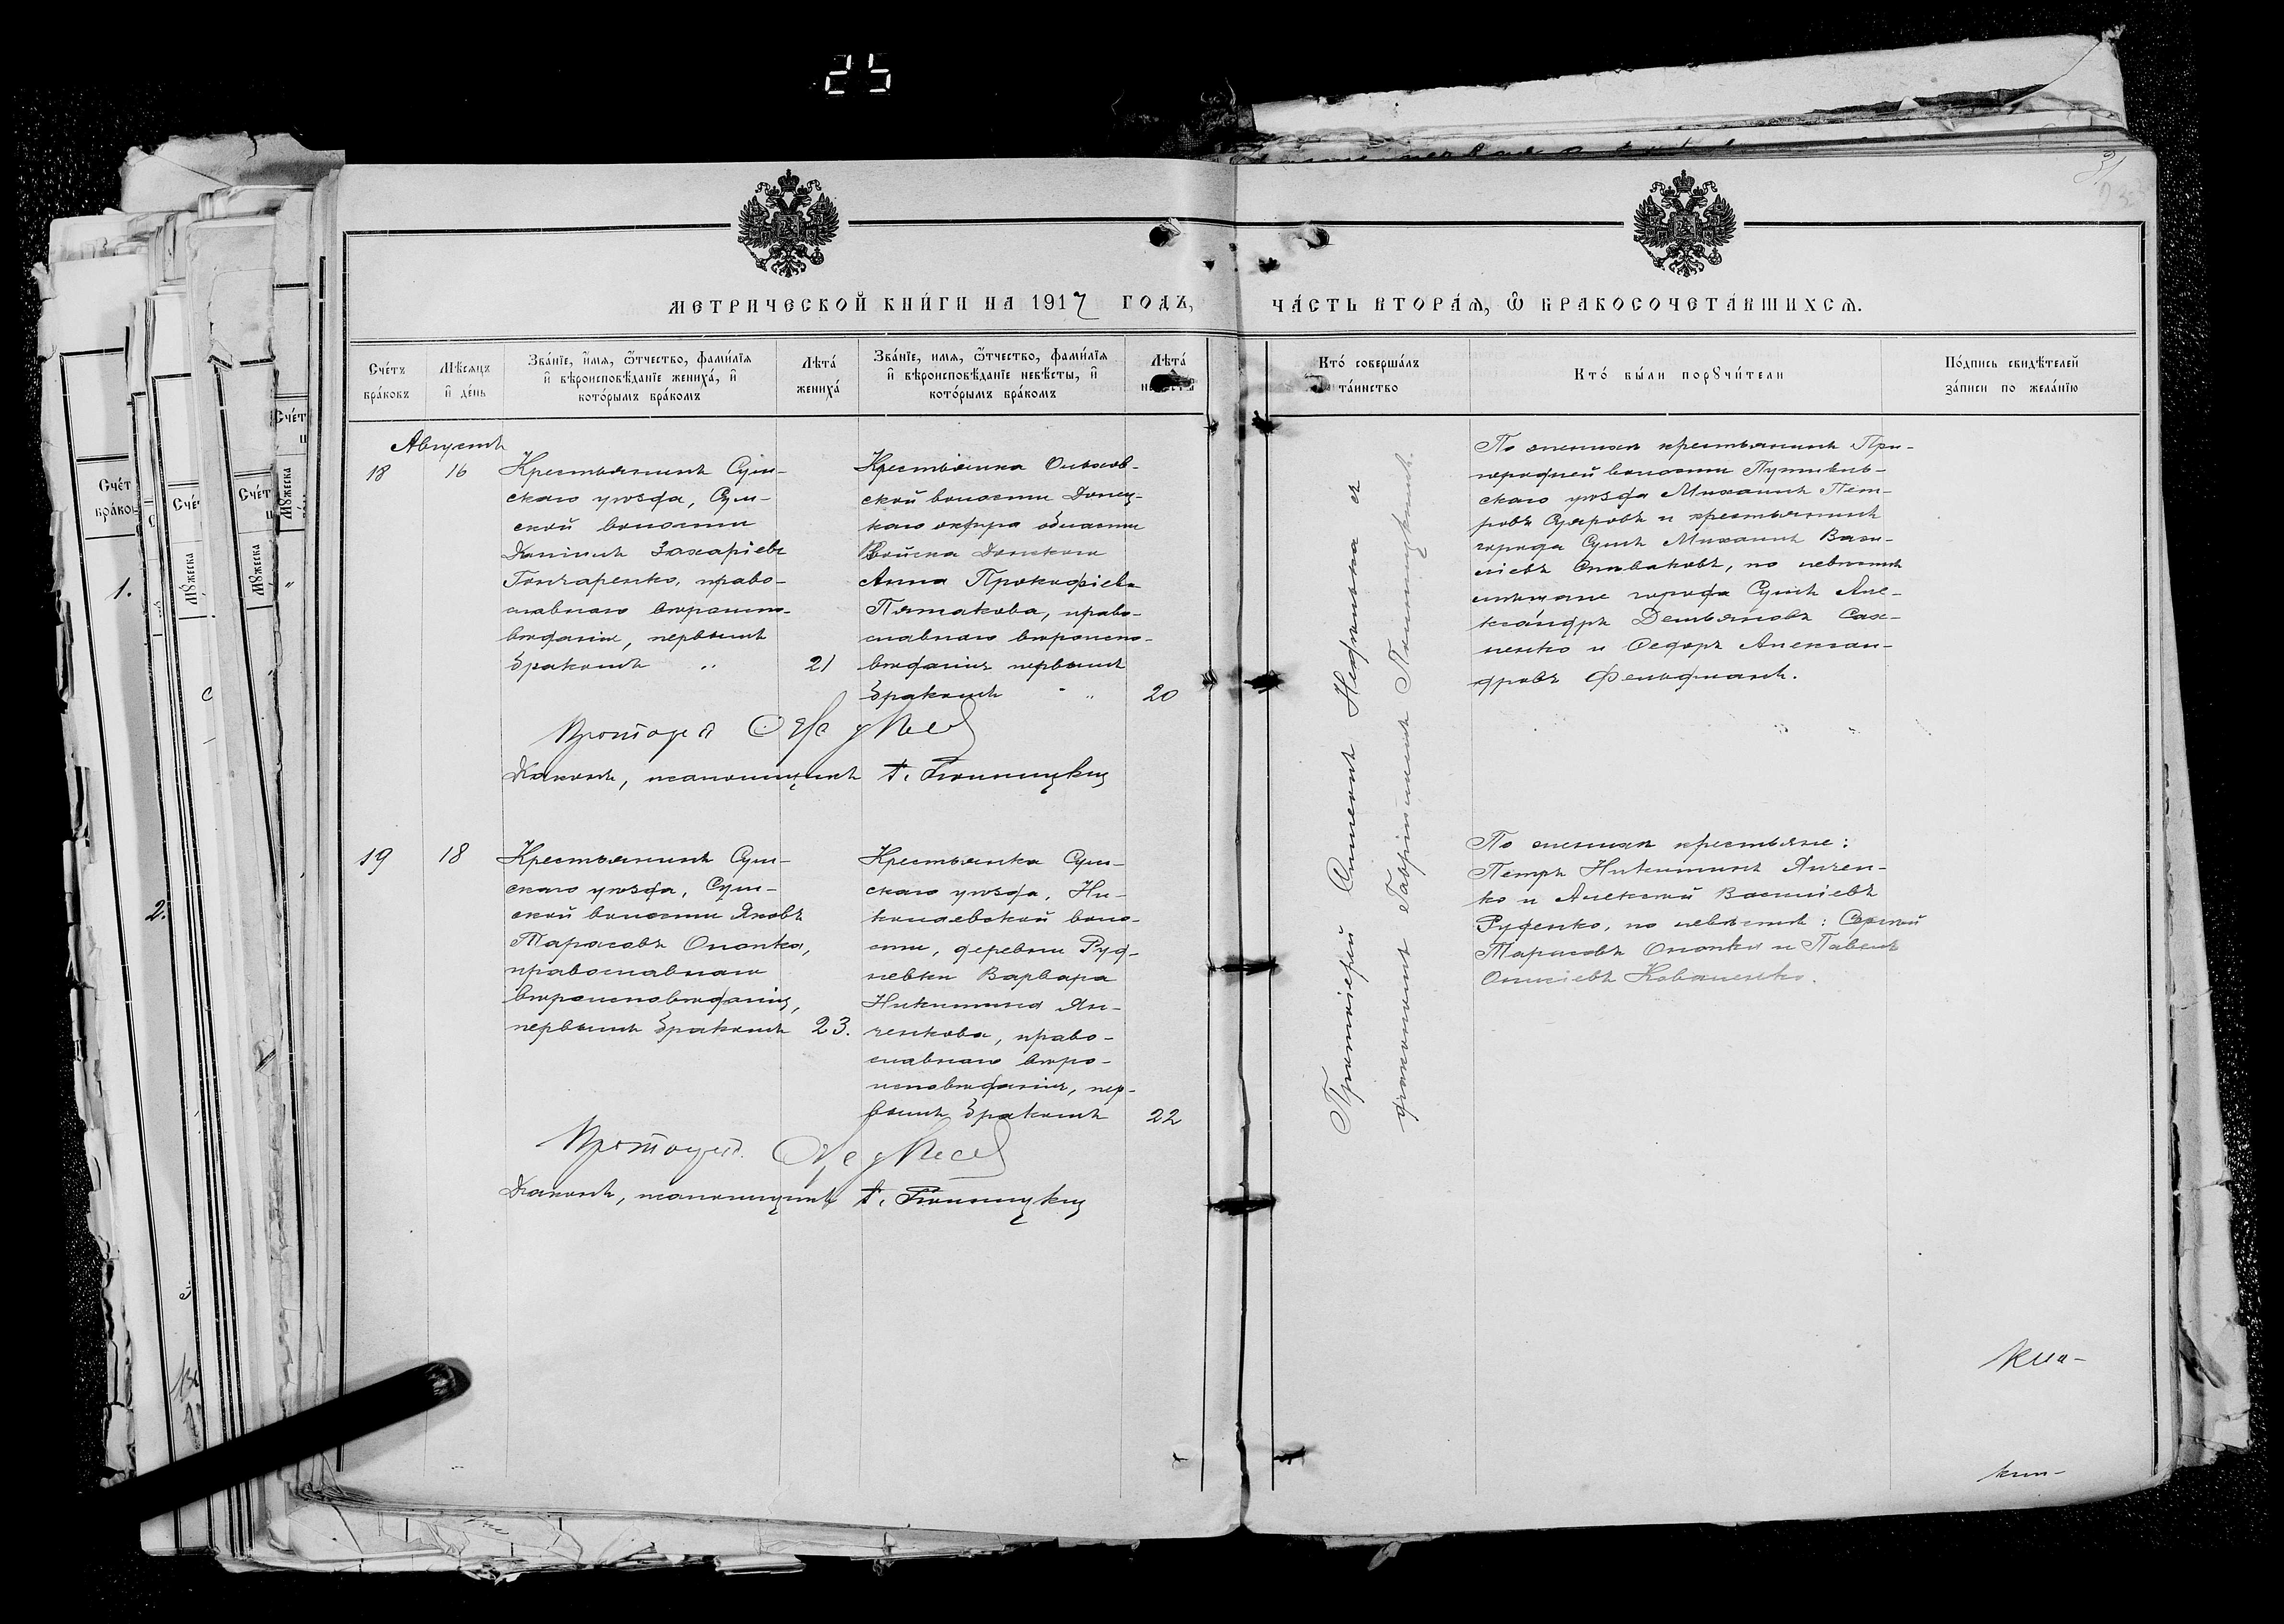 25
31
МЕТРИЧЕСКОЙ КНИ́ГИ НА 1917 ГОДЪ,
ЧА́СТЬ ВТОРА́Ѧ, Ѽ БРАКОСОЧЕТА́ВШИХСѦ.
Сче́тъ бра́ковъ
Мѣ́сяцъ и҆ де́нь
Зва́нїе, и҆́мя, ѻ҆́тчество, фами́лїя
и҆ вѣроисповѣ́данїе жениха̀, и҆
кото́рымъ бра́комъ
Лѣта̀ жениха̀
Зва́нїе, имя, ѻ҆́тчество, фами́лїя
и҆ вѣроисповѣ́данїе невѣ́сты, и҆
кото́рымъ бра́комъ
Лѣта́
Кто́ соверша́лъ
та́инство
Кто́ бы́ли порꙋчи́тели
По́дпись свидѣ́телей
за́писи по жела́нїю
Августъ
18
16
Крестьянинъ Сум-
скаго уѣзда, Сум-
ской волости
Даніилъ Захаріевъ
Гончаренко, право-
славнаго вѣроиспо-
вѣданія, первымъ
бракомъ "
21
Крестьянка Ольхов-
ской волости Донец-
каго округа области
Войска Донского
Анна Прокофіева
Пятакова, право-
славнаго вѣроиспо-
вѣданія первымъ
бракомъ "
20
Протоіерей Симеонъ Нефтьева съ
діакономъ Гавріиломъ
По женихѣ крестьянинъ При-
городней волости Путивль-
скаго уѣзда Михаилъ Пет-
ровъ Суяровъ и крестьянинъ
города Сумъ Михаилъ Васи-
ліевъ Спиваковъ, по невѣстѣ
мѣщане города Сумъ Але-
ксандръ Демьяновъ Сах-
ненко и Ѳедоръ Алексан-
дровъ Фельдманъ.
Протоіерей
Діаконъ, псаломщикъ Г.
19
18
Крестьянинъ Сум-
скаго уѣзда, Сум-
ской волости Яковъ
Тарасовъ Опопка,
православнаго
вѣроисповѣданія,
первымъ бракомъ
23.
Крестьянка Сум-
скаго уѣзда, Ни-
колаевской воло-
сти, деревни Руд-
невки Варвара
Никитина Ян-
ченкова, право-
славнаго вѣро-
исповѣданія, пер-
вымъ бракомъ
22
По женихѣ крестьяне:
Петръ Никитинъ Янчен-
ко и Алексѣй Василіевъ
Руденко, по невѣстѣ: Сергѣй
Тарасовъ Опопка и Павелъ
Коваленко.
Протоіерей
Діаконъ, псаломщикъ Г.